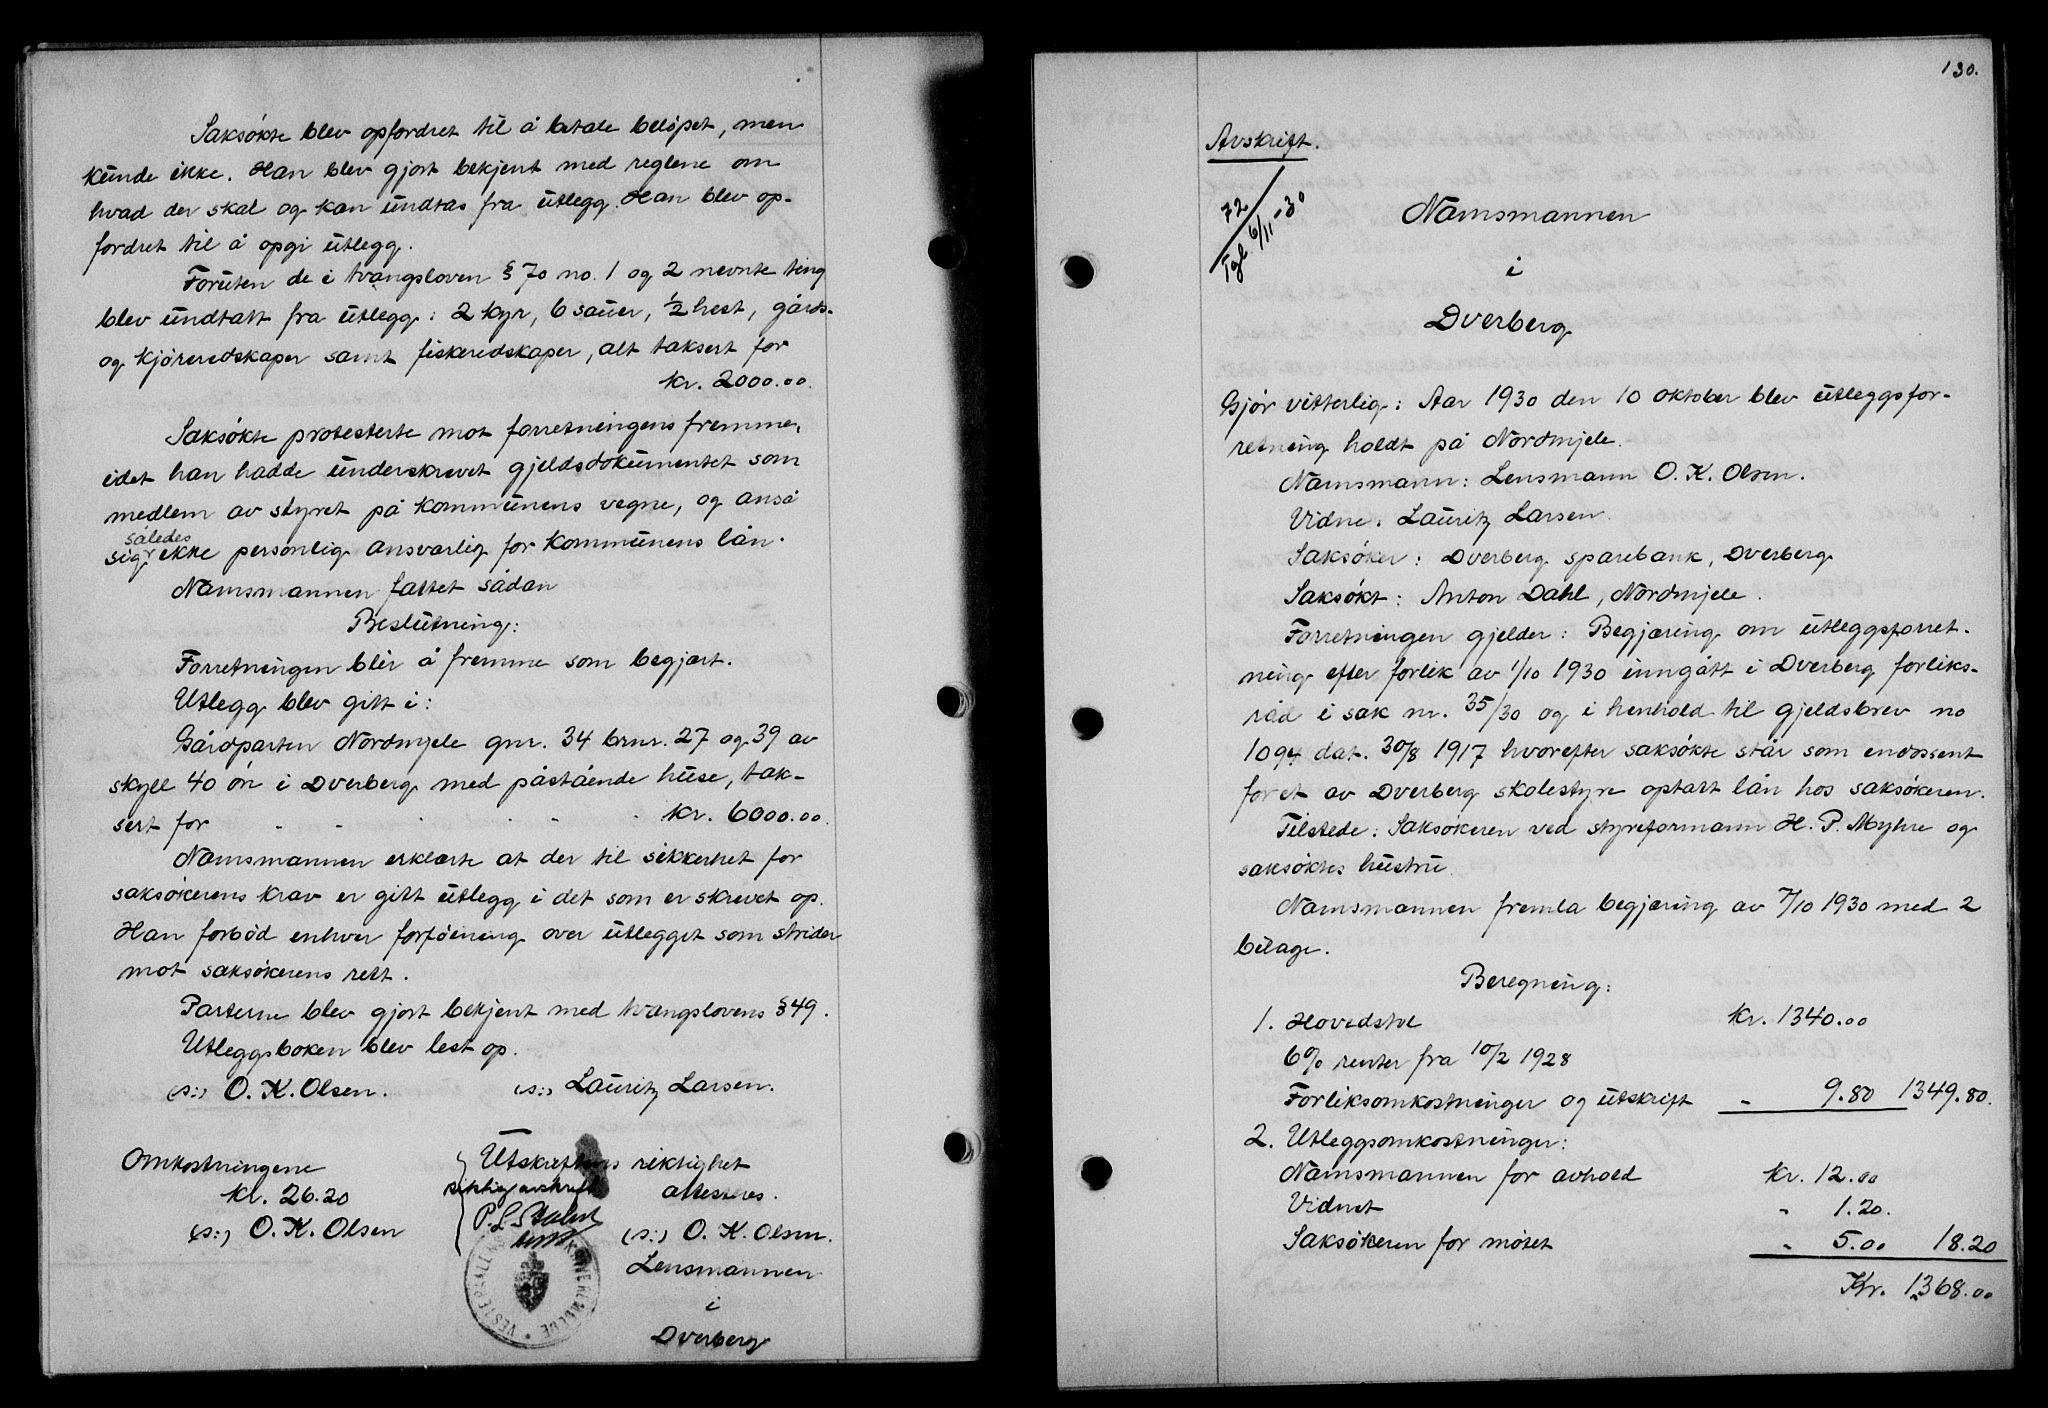 Saksøkte blev opfordret til å betale beløpet, men
kunde ikke. Han blev gjort bekjent med reglene om
hvad der skal og kan undtas fra utlegg. Han blev op-
fordret til å opgi utlegg.
Foruten de i tvangsloven § 70 no. 1 og 2 nevnte ting
blev undtatt fra utlegg: 2 kyr, 6 sauer, ½ hest, gårds-
og kjøreredskaper samt fiskeredskaper, alt taksert for
kr. 2000.00.
Saksøkte protesterte mot forretningens fremme,
idet han hadde underskrevet gjeldsdokumentet som
medlem av styret på kommunens vegne, og anså
således
sig ikke personlig ansvarlig for kommunens lån.
Namsmannen fattet sådan
Beslutning:
Forretningen blir å fremme som begjært.
Utlegg blev gitt i:
Gårdparten Nordmjele gnr. 34 brnr. 27 og 39 av
skyll 40 øre i Dverberg med påstående huse, tak-
sert for - - - - - kr. 6000.00.
Namsmannen erklærte at der til sikkerhet for
saksøkerens krav er gitt utlegg i det som er skrevet op.
Han forbød enhver forføining over utlegget som strider
mot saksøkerens rett.
Parterne blev gjort bekjent med tvangslovens § 49.
Utleggsboken blev lest op.
(s:) O. K. Olsen. (s:) Lauritz Larsen.
Omkostningene
kr. 26.20
(s:) O. K. Olsen
Utskriftens riktighet
attesteres.
(s:) O. K. Olsen.
Lensmannen
i
Dverberg
Riktig avskrift
130.
Avskrift.
72
Tgl 6/11-30
Namsmannen
i
Dverberg
Gjør vitterlig: Aar 1930 den 10 oktober blev utleggsfor-
retning holdt på Nordmjele.
Namsmann: Lensmann O. K. Olsen.
Vidne: Lauritz Larsen.
Saksøker: Dverberg sparebank, Dverberg
Saksøkt: Anton Dahl, Nordmjele.
Forretningen gjelder: Begjæring om utleggsforret-
ning efter forlik av 1/10 1930 inngått i Dverberg forliks-
råd i sak nr. 35/30 og i henhold til gjeldsbrev no
1094 dat. 30/8 1917 hvorefter saksøkte står som endossent
for et av Dverberg skolestyre optatt lån hos saksøkeren.
Tilstede: Saksøkeren ved styreformann H. P. Myhre og
saksøktes hustru.
Namsmannen fremla begjæring av 7/10 1930 med 2
bilage.
Beregning:
1. Hovedstol kr. 1340.00
6% renter fra 10/2 1928
Forliksomkostninger og utskrift " 9.80 1349.80.
2. Utleggsomkostninger:
Namsmannen for avhold kr. 12.00
Vidnet " 1.20.
Saksøkeren for møtet " 5.00 18.20
Kr. 1368.00